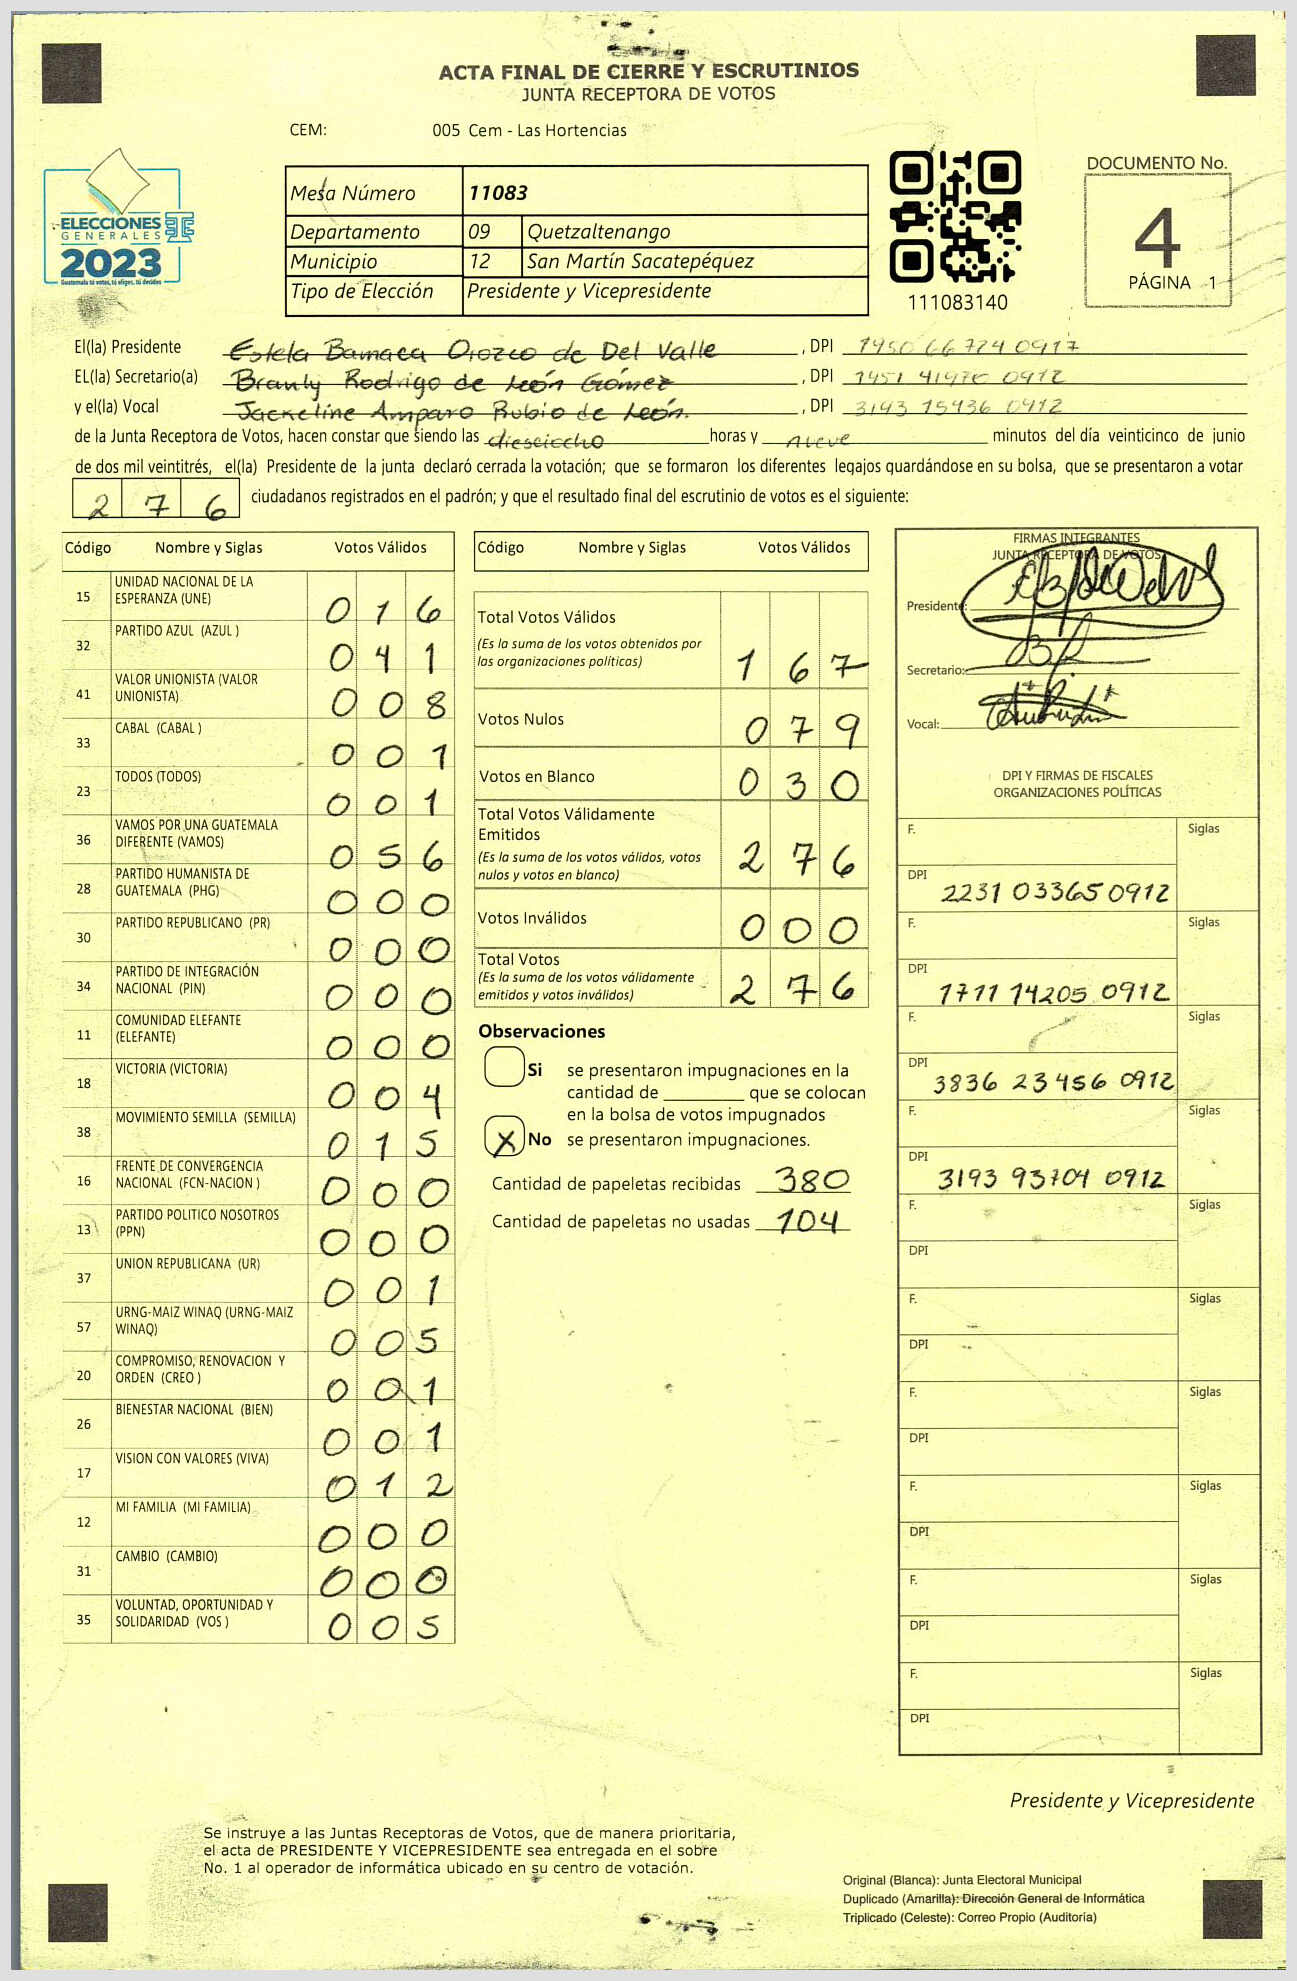 ACTA FINAL DE CIERRE Y ESCRUTINIOS
JUNTA RECEPTORA DE VOTOS
CEM: 005 Cem - Las Hortencias
ELECCIONES
GENERALES
2023
Guatemala tú votas, tú eliges, tú decides
Mesa Número 11083
Departamento 09 Quetzaltenango
Municipio 12 San Martín Sacatepéquez
Tipo de Elección Presidente y Vicepresidente
111083140
DOCUMENTO No.
4
PÁGINA 1
El(la) Presidente Estela Bamaca Orozco de Del Valle, DPI 1450 66724 0917
EL(la) Secretario(a) Branly Rodrigo de León Gómez, DPI 1451 41976 0912
y el(la) Vocal Jackeline Amparo Rubio de León., DPI 3193 15436 0912
de la Junta Receptora de Votos, hacen constar que siendo las dieseiocho horas y nueve minutos del día veinticinco de junio
de dos mil veintitrés, el(la) Presidente de la junta declaró cerrada la votación; que se formaron los diferentes legajos guardándose en su bolsa, que se presentaron a votar
276 ciudadanos registrados en el padrón; y que el resultado final del escrutinio de votos es el siguiente:
Código Nombre y Siglas Votos Válidos
15 UNIDAD NACIONAL DE LA ESPERANZA (UNE) 016
32 PARTIDO AZUL (AZUL ) 041
41 VALOR UNIONISTA (VALOR UNIONISTA) 008
33 CABAL (CABAL ) 001
23 TODOS (TODOS) 001
36 VAMOS POR UNA GUATEMALA DIFERENTE (VAMOS) 056
28 PARTIDO HUMANISTA DE GUATEMALA (PHG) 000
30 PARTIDO REPUBLICANO (PR) 000
34 PARTIDO DE INTEGRACIÓN NACIONAL (PIN) 000
11 COMUNIDAD ELEFANTE (ELEFANTE) 000
18 VICTORIA (VICTORIA) 004
38 MOVIMIENTO SEMILLA (SEMILLA) 015
16 FRENTE DE CONVERGENCIA NACIONAL (FCN-NACION ) 000
13 PARTIDO POLITICO NOSOTROS (PPN) 000
37 UNION REPUBLICANA (UR) 001
57 URNG-MAIZ WINAQ (URNG-MAIZ WINAQ) 005
20 COMPROMISO, RENOVACION Y ORDEN (CREO ) 001
26 BIENESTAR NACIONAL (BIEN) 001
17 VISION CON VALORES (VIVA) 012
12 MI FAMILIA (MI FAMILIA) 000
31 CAMBIO (CAMBIO) 000
35 VOLUNTAD, OPORTUNIDAD Y SOLIDARIDAD (VOS ) 005
Código Nombre y Siglas Votos Válidos
Total Votos Válidos
(Es la suma de los votos obtenidos por
las organizaciones políticas) 167
Votos Nulos 079
Votos en Blanco 030
Total Votos Válidamente
Emitidos
(Es la suma de los votos válidos, votos
nulos y votos en blanco) 276
Votos Inválidos 000
Total Votos
(Es la suma de los votos válidamente
emitidos y votos inválidos) 276
Observaciones
Si se presentaron impugnaciones en la
cantidad de ________ que se colocan
en la bolsa de votos impugnados
X No se presentaron impugnaciones.
Cantidad de papeletas recibidas 380
Cantidad de papeletas no usadas 104
FIRMAS INTEGRANTES
JUNTA RECEPTORA DE VOTOS
Presidente:
Secretario:
Vocal:
DPI Y FIRMAS DE FISCALES
ORGANIZACIONES POLÍTICAS
F. Siglas
DPI 2231 03365 0912
F. Siglas
DPI 1711 14205 0912
F. Siglas
DPI 3836 23456 0912
F. Siglas
DPI 3193 93704 0912
F. Siglas
DPI
F. Siglas
DPI
F. Siglas
DPI
F. Siglas
DPI
F. Siglas
DPI
F. Siglas
DPI
Presidente y Vicepresidente
Se instruye a las Juntas Receptoras de Votos, que de manera prioritaria,
el acta de PRESIDENTE Y VICEPRESIDENTE sea entregada en el sobre
No. 1 al operador de informática ubicado en su centro de votación.
Original (Blanca): Junta Electoral Municipal
Duplicado (Amarilla): Dirección General de Informática
Triplicado (Celeste): Correo Propio (Auditoría)